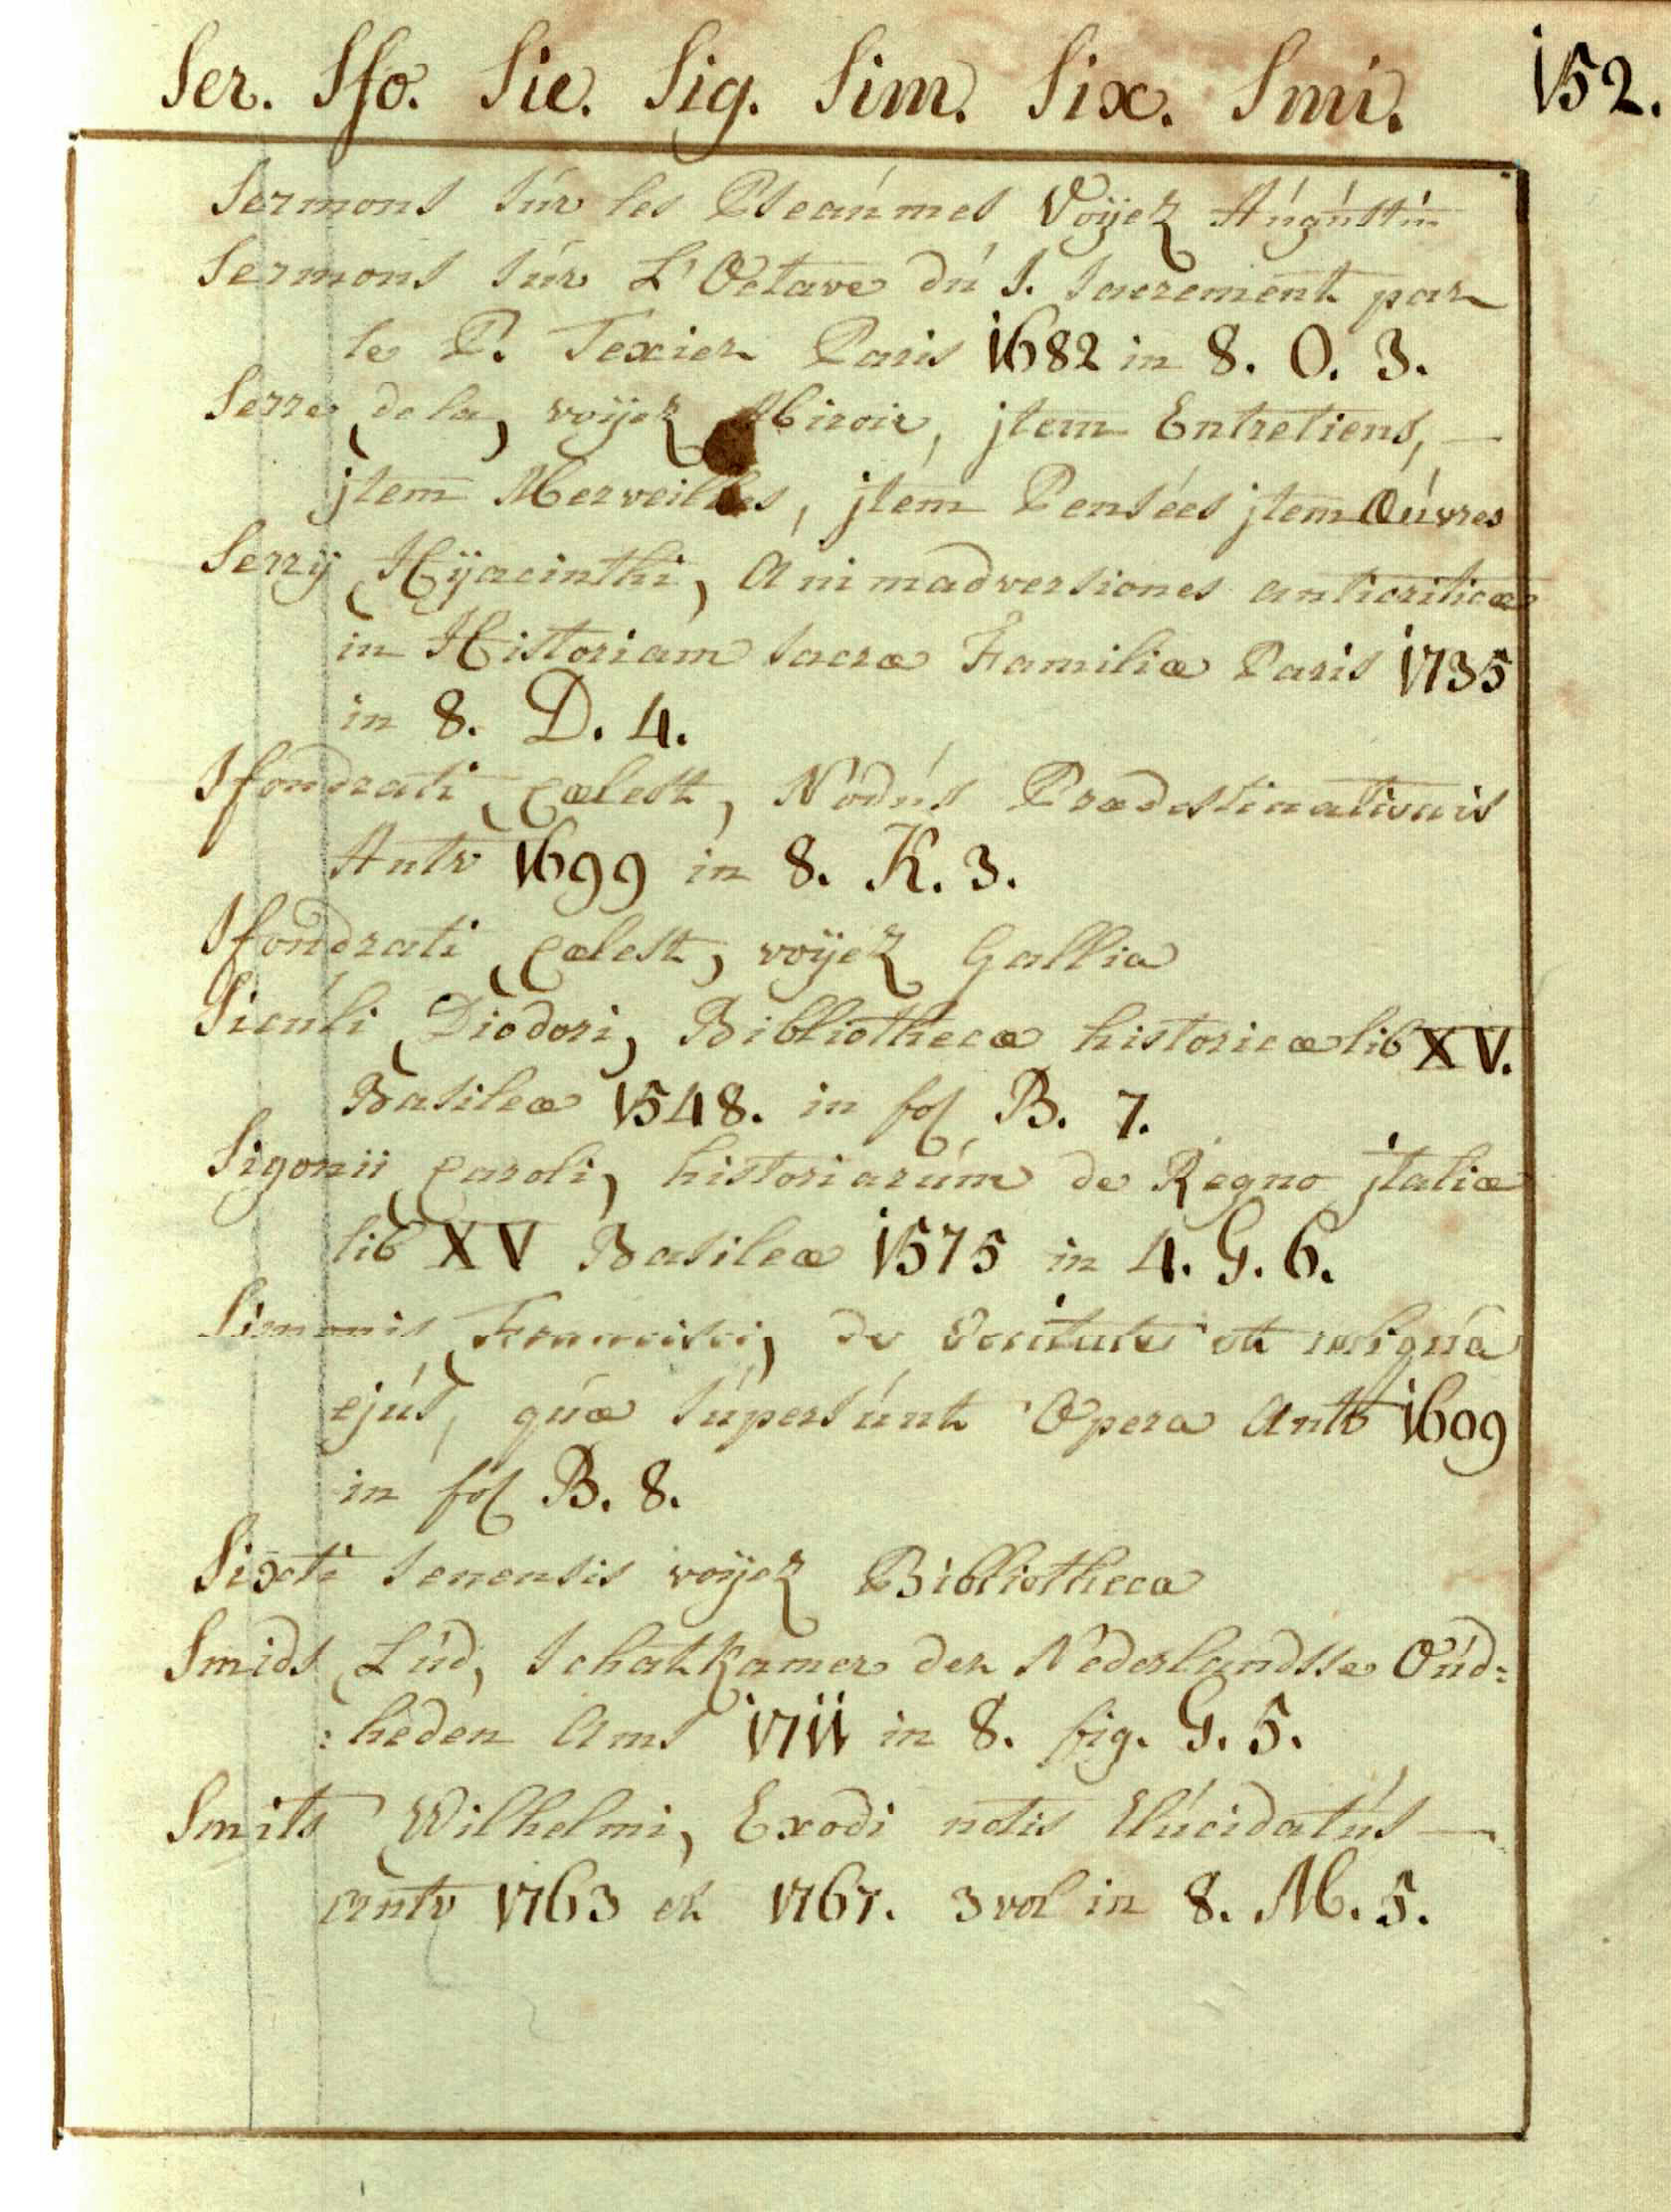 Ser. Sfo. Sic. Sig. Sim. Six. Smi. 152.
Sermons sur les Pseaumes Voÿez Augustin
Sermons sur L'Octave du S. Sacrement par
le P. Texier Paris 1682 in 8. O. 3.
Serre (de la) voÿez Miroir, jtem Entretiens, —
jtem Merveilles, jtem Pensées jtem Œuvres
Serrÿ (Hÿacinthi) Animadversiones anticriticæ
in Historiam sacræ Familiæ Paris 1735
in 8. D. 4.
Sfondrati (Cælest) Nodus Prædestinationis
Antv 1699 in 8. K. 3.
Sfondrati (Cælest) voÿez Gallia
Siculi (Diodori) Bibliothecæ historicæ lib XV.
Basileæ 1548. in fol B. 7.
Sigonii (Caroli) historiarum de Regno jtaliæ
lib XV Basileæ 1575 in 4. G. 6.
Simonis (Francisci) de Veritate et reliqua
ejus, quæ supersunt Opera Antv 1699
in fol B. 8.
Sixti Senensis voÿez Bibliotheca
Smids (Lud, Schatkamer der Nederlandsse Oud=
:heden Ams 1711 in 8. fig. G. 5.
Smits (Wilhelmi) Exodi notis Elucidatus —
antv 1763 et 1767. 3 vol in 8. M. 5.